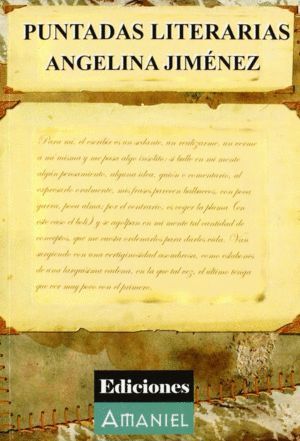 PUNTADAS LITERARIAS
ANGELINA JIMÉNEZ
Para mí, el escribir es un sedante, un realizarme, un verme
a mí misma y me pasa algo insólito: si bulle en mi mente
algún pensamiento, alguna idea, guión o comentario, al
expresarlo oralmente, mis frases parecen balbuceos, con poca
garra, poca alma; por el contrario, es coger la pluma (en
este caso el boli) y se agolpan en mi mente tal cantidad de
conceptos, que me cuesta ordenarlos para darles vida. Van
surgiendo con una vertiginosidad asombrosa, como eslabones
de una larguísima cadena, en la que tal vez, el último tenga
que ver muy poco con el primero.
Ediciones
AMANIEL